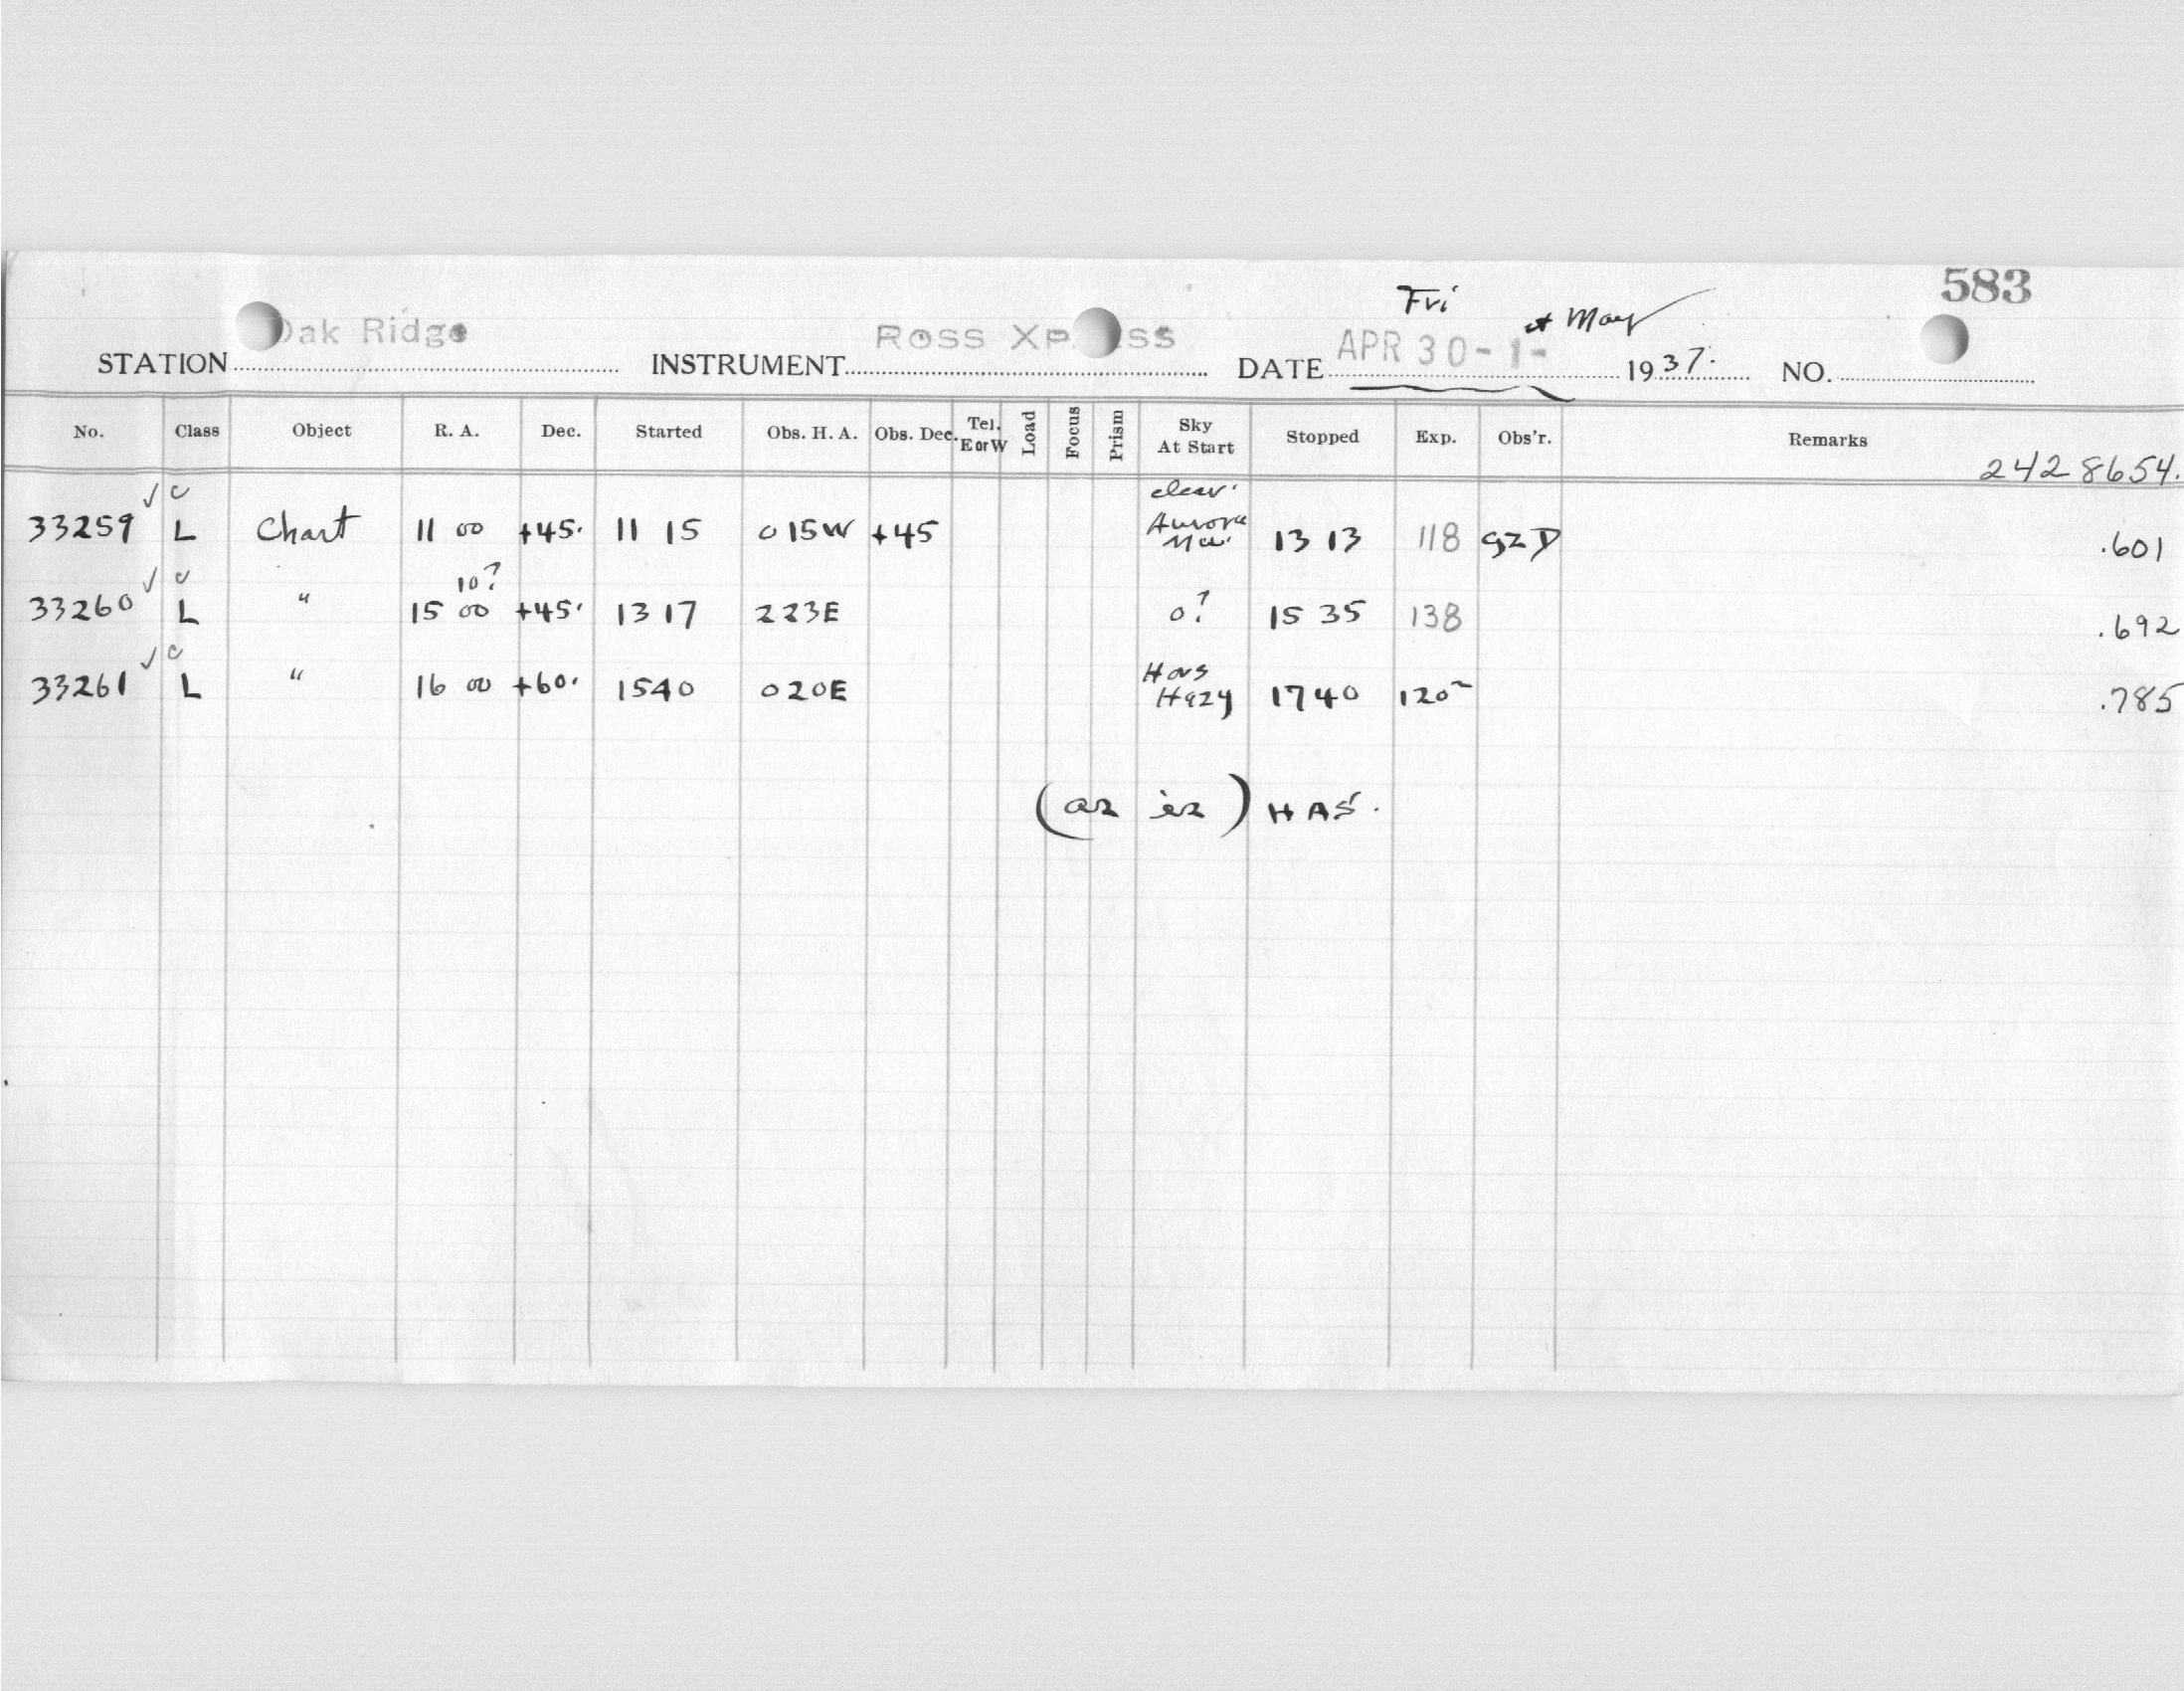 583
Fri
st May
Oak Ridge Ross Xp ss APR 30-1-
STATION INSTRUMENT DATE 1937. NO.
No. Class Object R. A. Dec. Started Obs. H. A. Obs. Dec. Tel. E or W Load Focus Prism Sky At Start Stopped Exp. Obs'r. Remarks
2428654.
✓ c clear.
33259 L Chart 11 00 +45. 11 15 0 15W +45 Aurora 13 13 118 .601
✓ c 10?
33260 L " 15 00 +45. 13 17 2 23E 0? 15 35 138 .692
✓ c
33261 L " 16 00 +60. 15 40 0 20E Hazy 17 40 120 .785
( ) HAS.